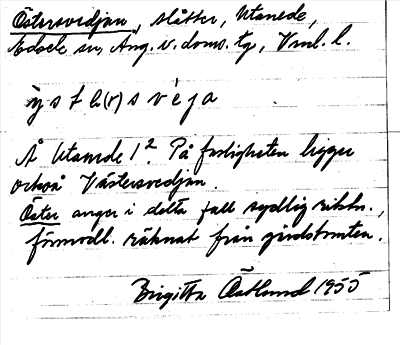 Östersvedjan, slåtter, Utanede,
Edsele sn, Ång. v. doms. tg, Vnl. l.
ỳ s t e(r) s v e j a
Å Utanede 1². På fastigheten ligger
också Västersvedjan.
Öster anger i detta fall sydlig riktn.,
förmodl. räknat från gårdstomten.
Birgitta Östlund 1955